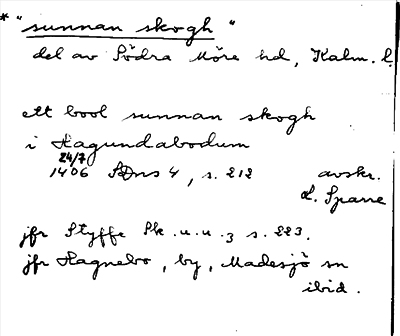 * "sunnan skogh"
del av Södra Möre hd, Kalm. l.
ett bool sunnan skogh
i Hagundabodum
24/7
1406 SDns 4, s. 212 avskr.
L. Sparre
jfr Styffe Sk. u. u. 3 s. 223.
jfr Hagnebo, by, Madesjö sn
ibid.